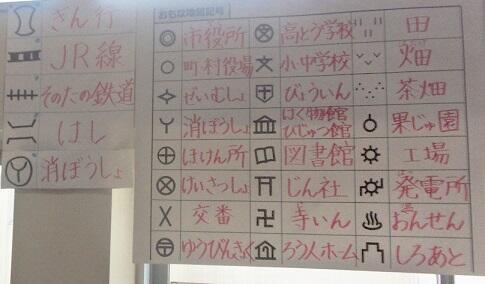 ぎん行
JR線
そのたの鉄道
はし
消ぼうしょ
おもな地図記号
市役所
高とう学校
田
町・村役場
小中学校
畑
ぜいむしょ
びょういん
茶畑
消ぼうしょ
はく物館
びじゅつ館
果じゅ園
ほけん所
図書館
工場
けいさつしょ
じん社
発電所
交番
寺いん
おんせん
ゆうびんきょく
ろう人ホーム
しろあと